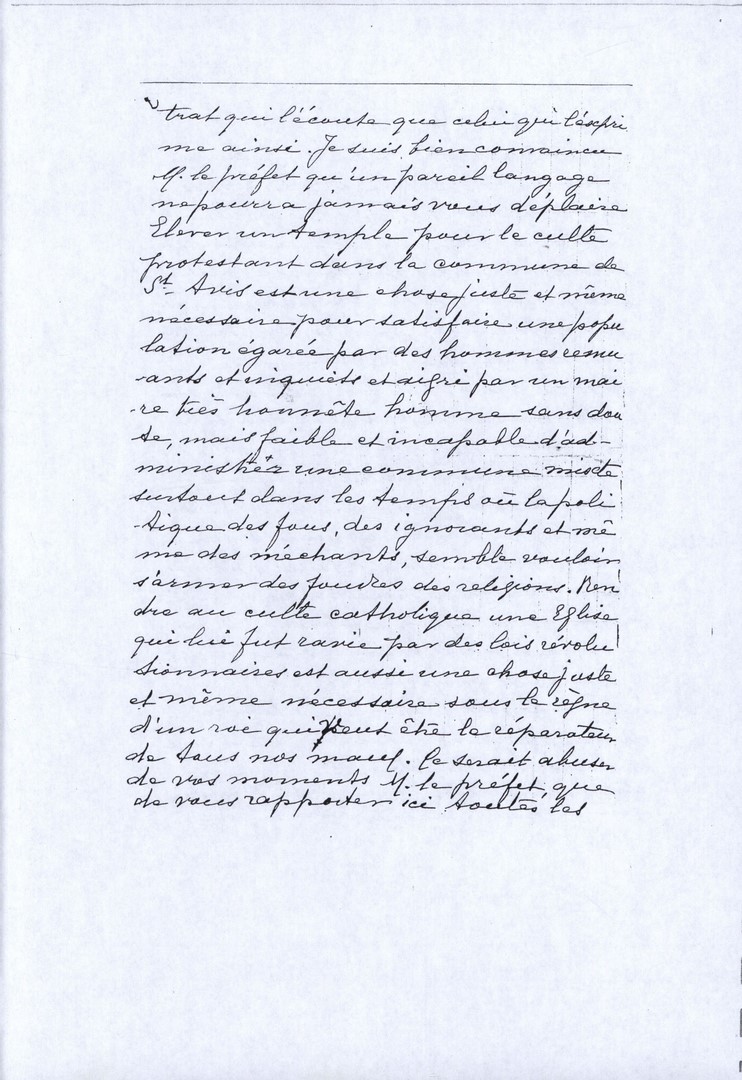 trat qui l'écoute que celui qui l'éxpri
me ainsi. Je suis bien convaincu
M. le préfet qu'un pareil langage
ne pourra jamais vous déplaire
Elever un temple pour le culte
protestant dans la commune de
St. Avis est une chose juste et même
nécessaire pour satisfaire une popu
lation égarée par des hommes remu
-ants et inquiets et aigri par un mai
-re très honnête homme sans dou
te, mais faible et incapable d'ad-
ministrer une commune mixte
surtout dans les temps où la poli
-tique des fous, des ignorants et mê
me des méchants, semble vouloir
s'armer des foudres des religions. Ren
dre au culte catholique une Eglise
qui lui fut ravie par des lois révolu
tionnaires est aussi une chose juste
et même nécessaire sous le règne
d'un roi qui veut être le réparateur
de tous nos maux. Ce serait abuser
de vos moments M. le préfet, que
de vous rapporter ici toutes les